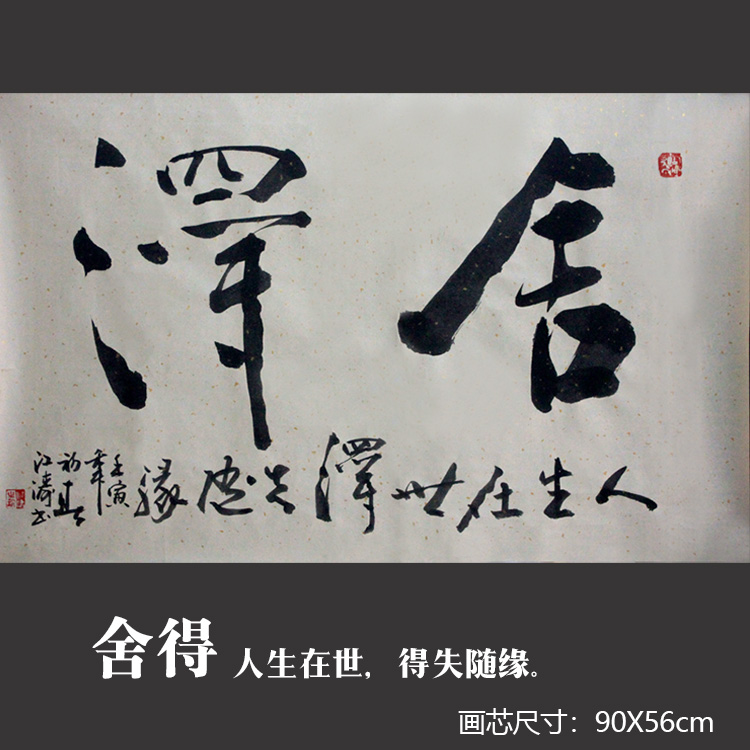 舍得
人生在世得失随緣
壬寅
年
初春
江濤书
舍得 人生在世，得失随缘。
画芯尺寸：90X56cm